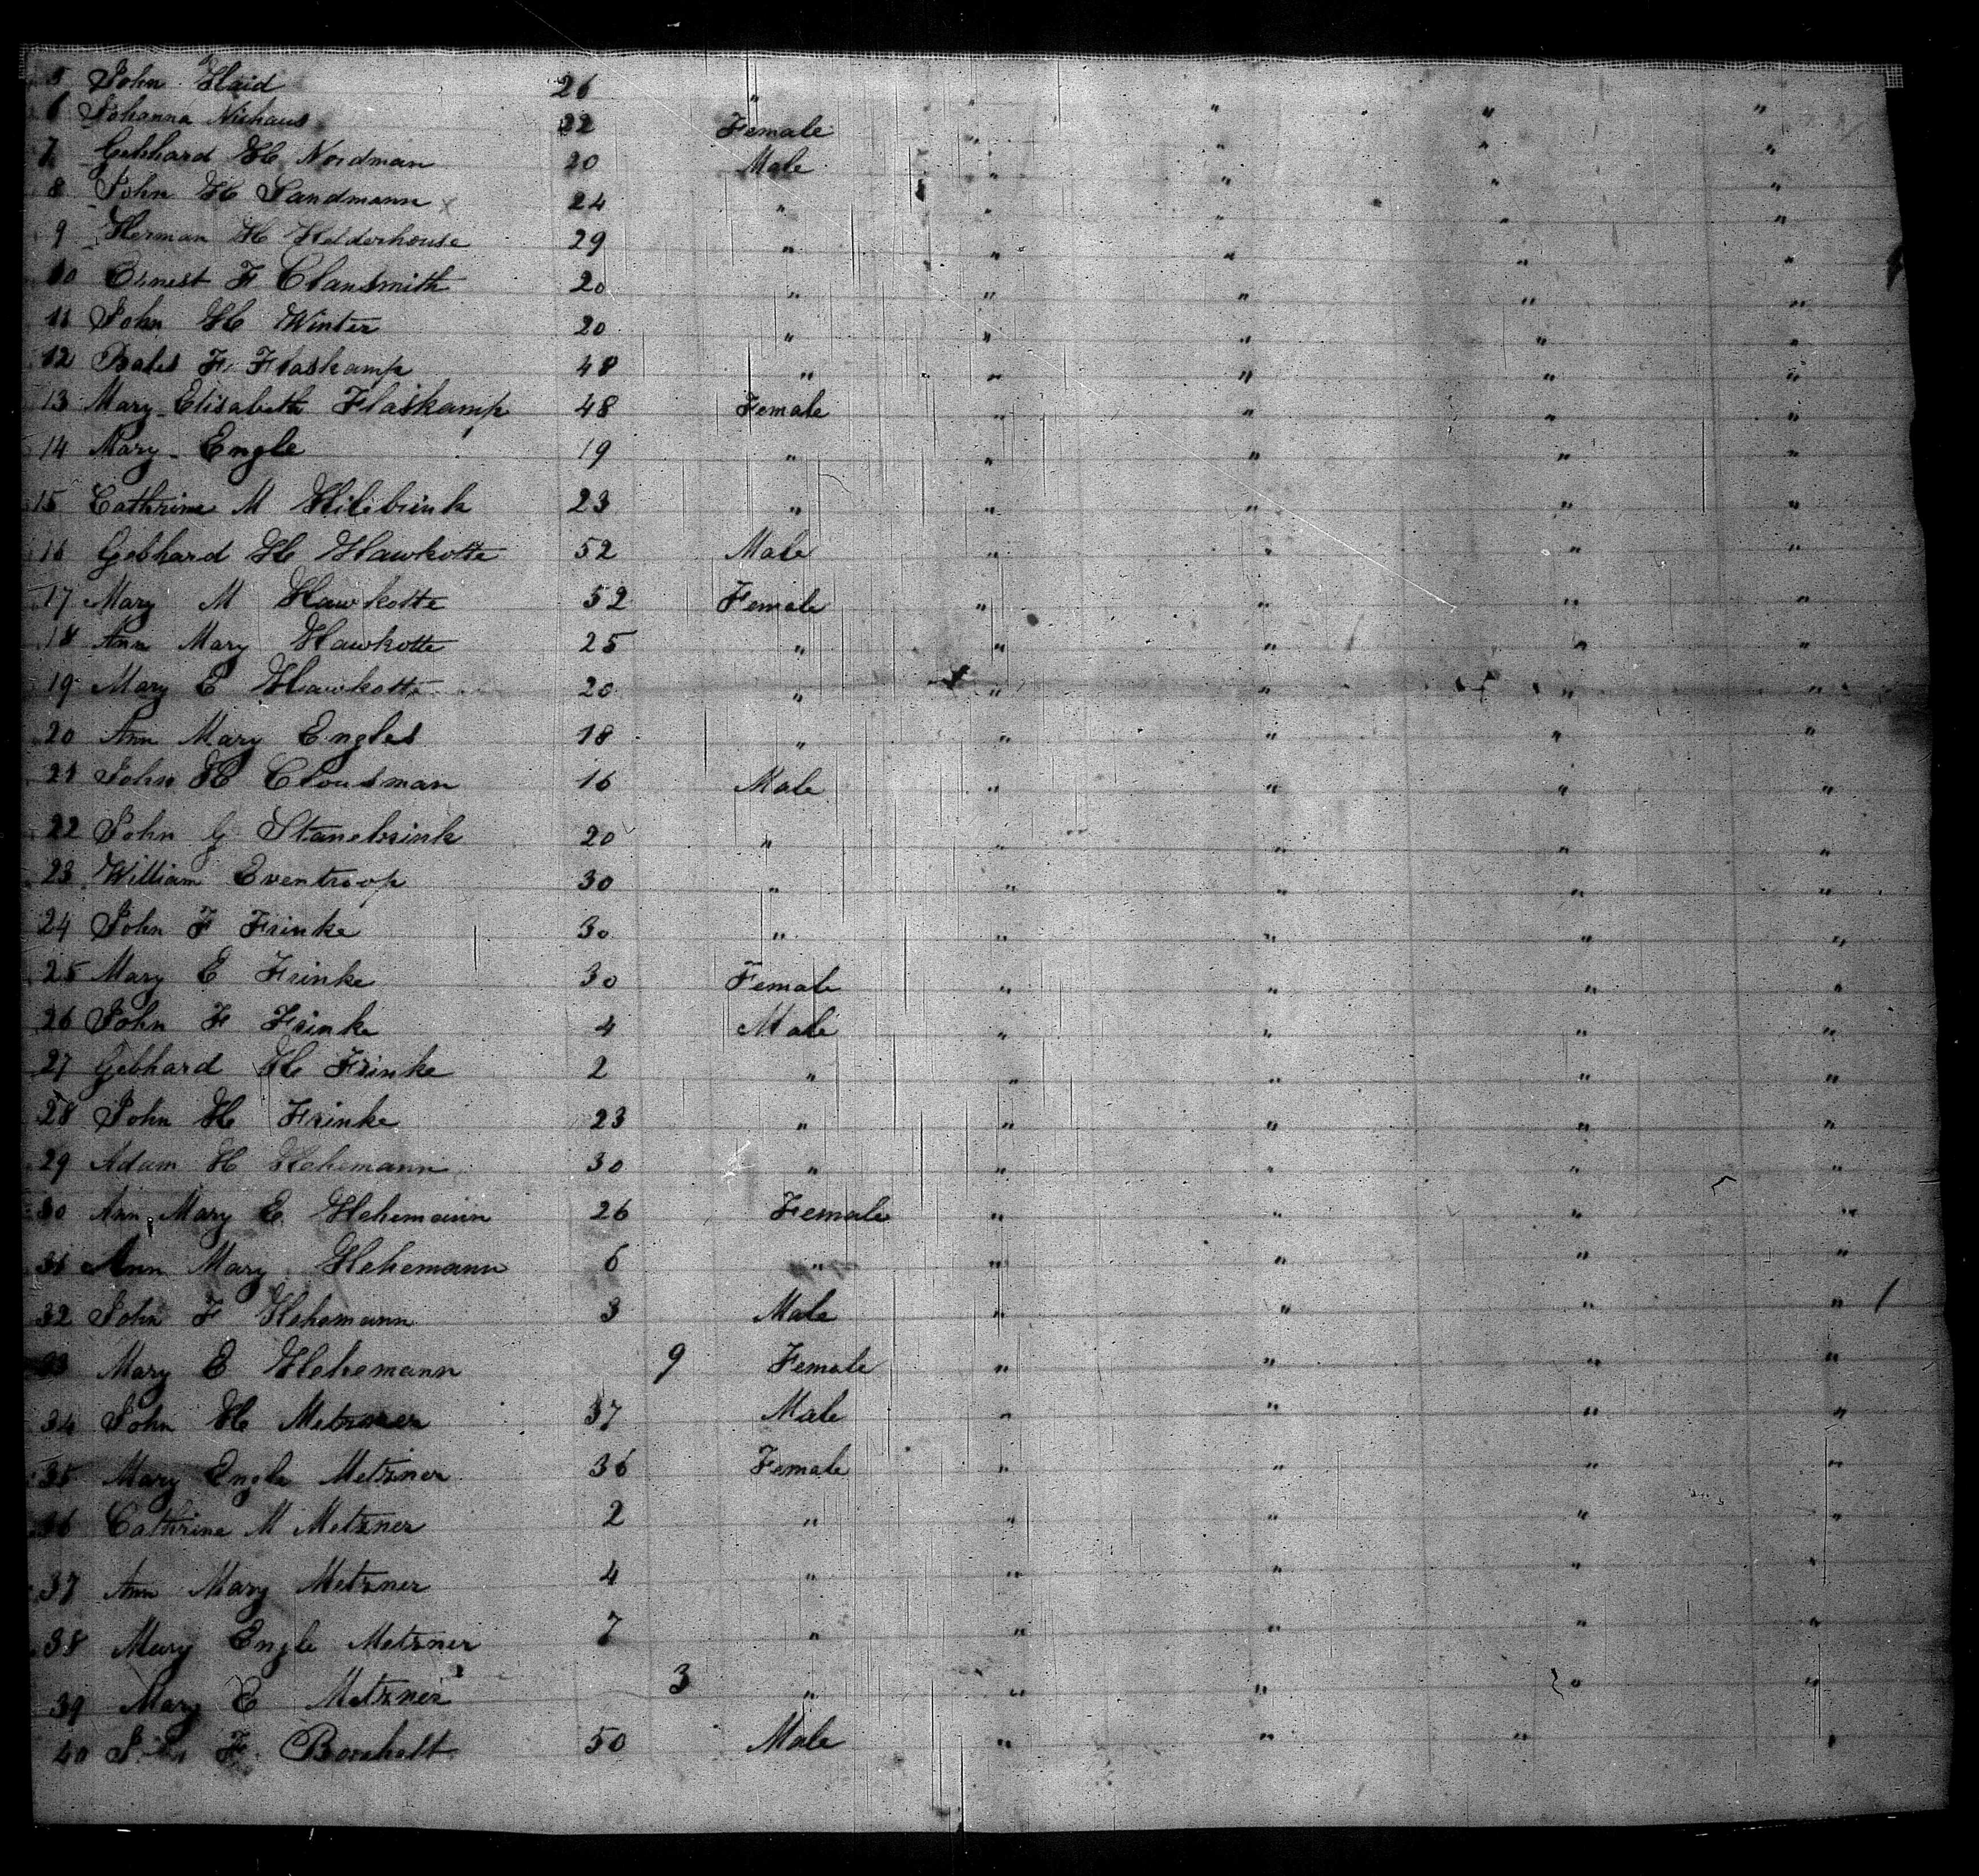 5 John Haid 26 " " " " "
6 Johanna Niehaus 22 Female " " " "
7 Gebhard H Nordman 20 Male " " " "
8 John H Sandmann 24 " " " " "
9 Herman H Helderhouse 29 " " " " "
10 Ernest F Clausmith 20 " " " " "
11 John H Winter 20 " " " " "
12 F Flaskamp 48 " " " " "
13 Mary Elisabeth Flaskamp 48 Female " " " "
14 Mary Engle 19 " " " " "
15 Cathrine M Hilibrink 23 " " " " "
16 Gebhard H Hawkotte 52 Male " " " "
17 Mary M Hawkotte 52 Female " " " "
18 Ann Mary Hawkotte 25 " " " " "
19 Mary E Hawkotte 20 " " " " "
20 Ann Mary Engles 18 " " " " "
21 John H Clousman 16 Male " " " "
22 John G Stanebrink 20 " " " " "
23 William Eventroop 30 " " " " "
24 John F Frinke 30 " " " " "
25 Mary E Frinke 30 Female " " " "
26 John F Frinke 4 Male " " " "
27 Gebhard H Frinke 2 " " " " "
28 John H Frinke 23 " " " " "
29 Adam H Hehemann 30 " " " " "
30 Ann Mary E Hehemann 26 Female " " " "
31 Ann Mary Hehemann 6 " " " " "
32 John F Hehemann 3 Male " " " "
33 Mary E Hehemann 9 Female " " " "
34 John H Metzner 37 Male " " " "
35 Mary Engle Metzner 36 Female " " " "
36 Cathrine M Metzner 2 " " " " "
37 Ann Mary Metzner 4 " " " " "
38 Mary Engle Metzner 7 " " " " "
39 Mary E Metzner 3 " " " " "
40 John F Borchelt 50 Male " " " "